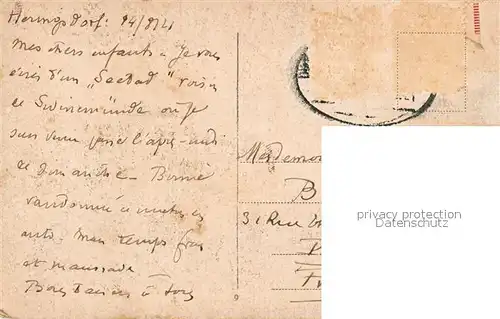 Heringsdorf: 14/8/21
Mes chers enfants Je vous
écris d'un "Seebad" voisin
de Swinemünde où je
suis venu passer l'après-midi
de dimanche. Bonne
randonnée à mettre en
auto. Mais temps frais
et maussade
Bons baisers à tous
Mademoi
B
31 Rue
P
privacy protection
Datenschutz